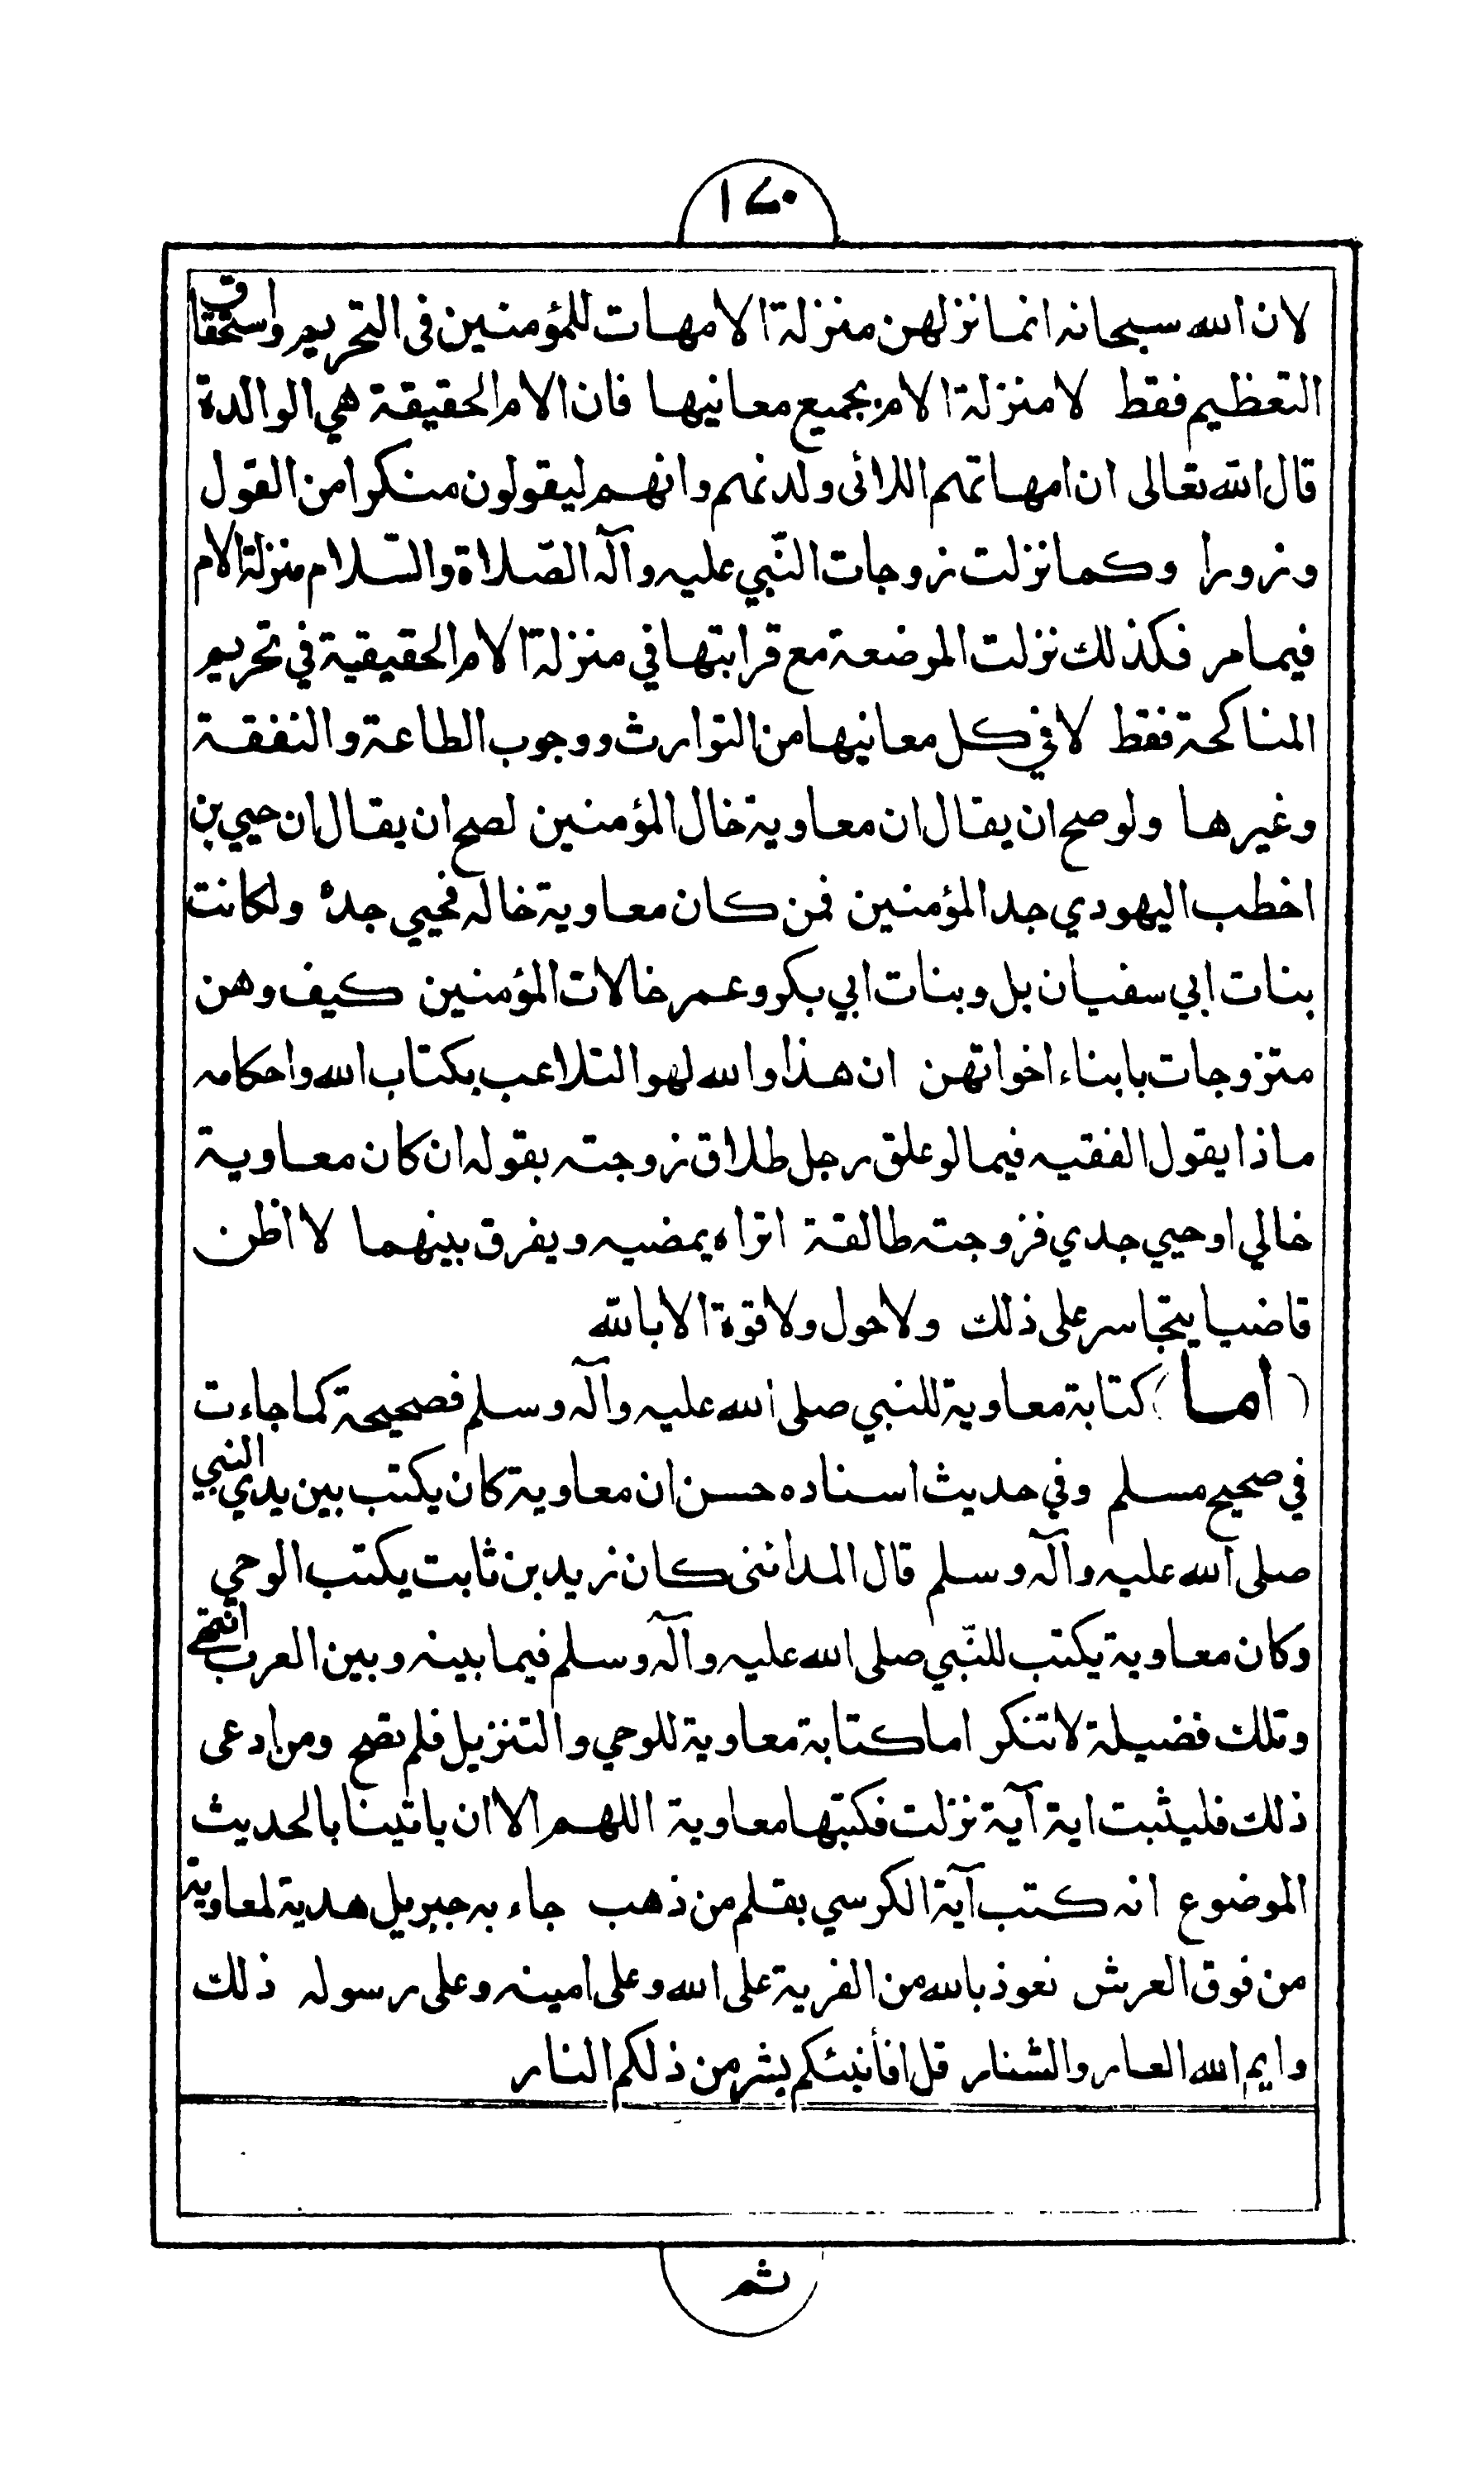 ١٧٠
لان الله سبحانه انما نزلهن منزلة الامهات للمؤمنين في التحريم واستحقاق
التعظيم فقط لا منزلة الام بجميع معانيها فان الام الحقيقة هي الوالدة
قال الله تعالى ان امهاتهم اللائى ولدنهم وانهم ليقولون منكرا من القول
وزورا وكما نزلت زوجات النّبي عليه وآله الصّلاة والسّلام منزلة الام
فيما مر فكذلك نزلت المرضعة مع قرابتها في منزلة الام الحقيقية في تحريم
المناكحة فقط لا في كل معانيها من التوارث ووجوب الطاعة والنفقة
وغيرها ولو صح ان يقال ان معاوية خال المؤمنين لصح ان يقال ان حيي بن
اخطب اليهودي جد المؤمنين فمن كان معاوية خاله فحيي جده ولكانت
بنات ابي سفيان بل وبنات ابي بكر وعمر خالات المؤمنين كيف وهن
متزوجات بابناء اخواتهن ان هذا والله لهو التلاعب بكتاب الله واحكامه
ماذا يقول الفقيه فيما لو علق رجل طلاق زوجته بقوله ان كان معاوية
خالي او حيي جدي فزوجته طالقة اتراه يمضيه ويفرق بينهما لا اظن
قاضيا يتجاسر على ذلك ولا حول ولا قوة الا بالله
(اما) كتابة معاوية للنبي صلى الله عليه وآله وسلم فصحيحة كما جاءت
في صحيح مسلم وفي حديث اسناده حسن ان معاوية كان يكتب بين يدي النبي
صلى الله عليه وآله وسلم قال المدائنى كان زيد بن ثابت يكتب الوحي
وكان معاوية يكتب للنّبي صلى الله عليه وآله وسلم فيما بينه وبين العرب انتهى
وتلك فضيلة لا تنكر اما كتابة معاوية للوحي والتنزيل فلم تصح ومن ادعى
ذلك فليثبت اية آية نزلت فكتبها معاوية اللهم الا ان ياتينا بالحديث
الموضوع انه كتب آية الكرسي بقلم من ذهب جاء به جبريل هدية لمعاوية
من فوق العرش نعوذ بالله من الفرية على الله وعلى امينه وعلى رسوله ذلك
وايم الله العار والشنار قل افأنبئكم بشر من ذلكم النار
ثم